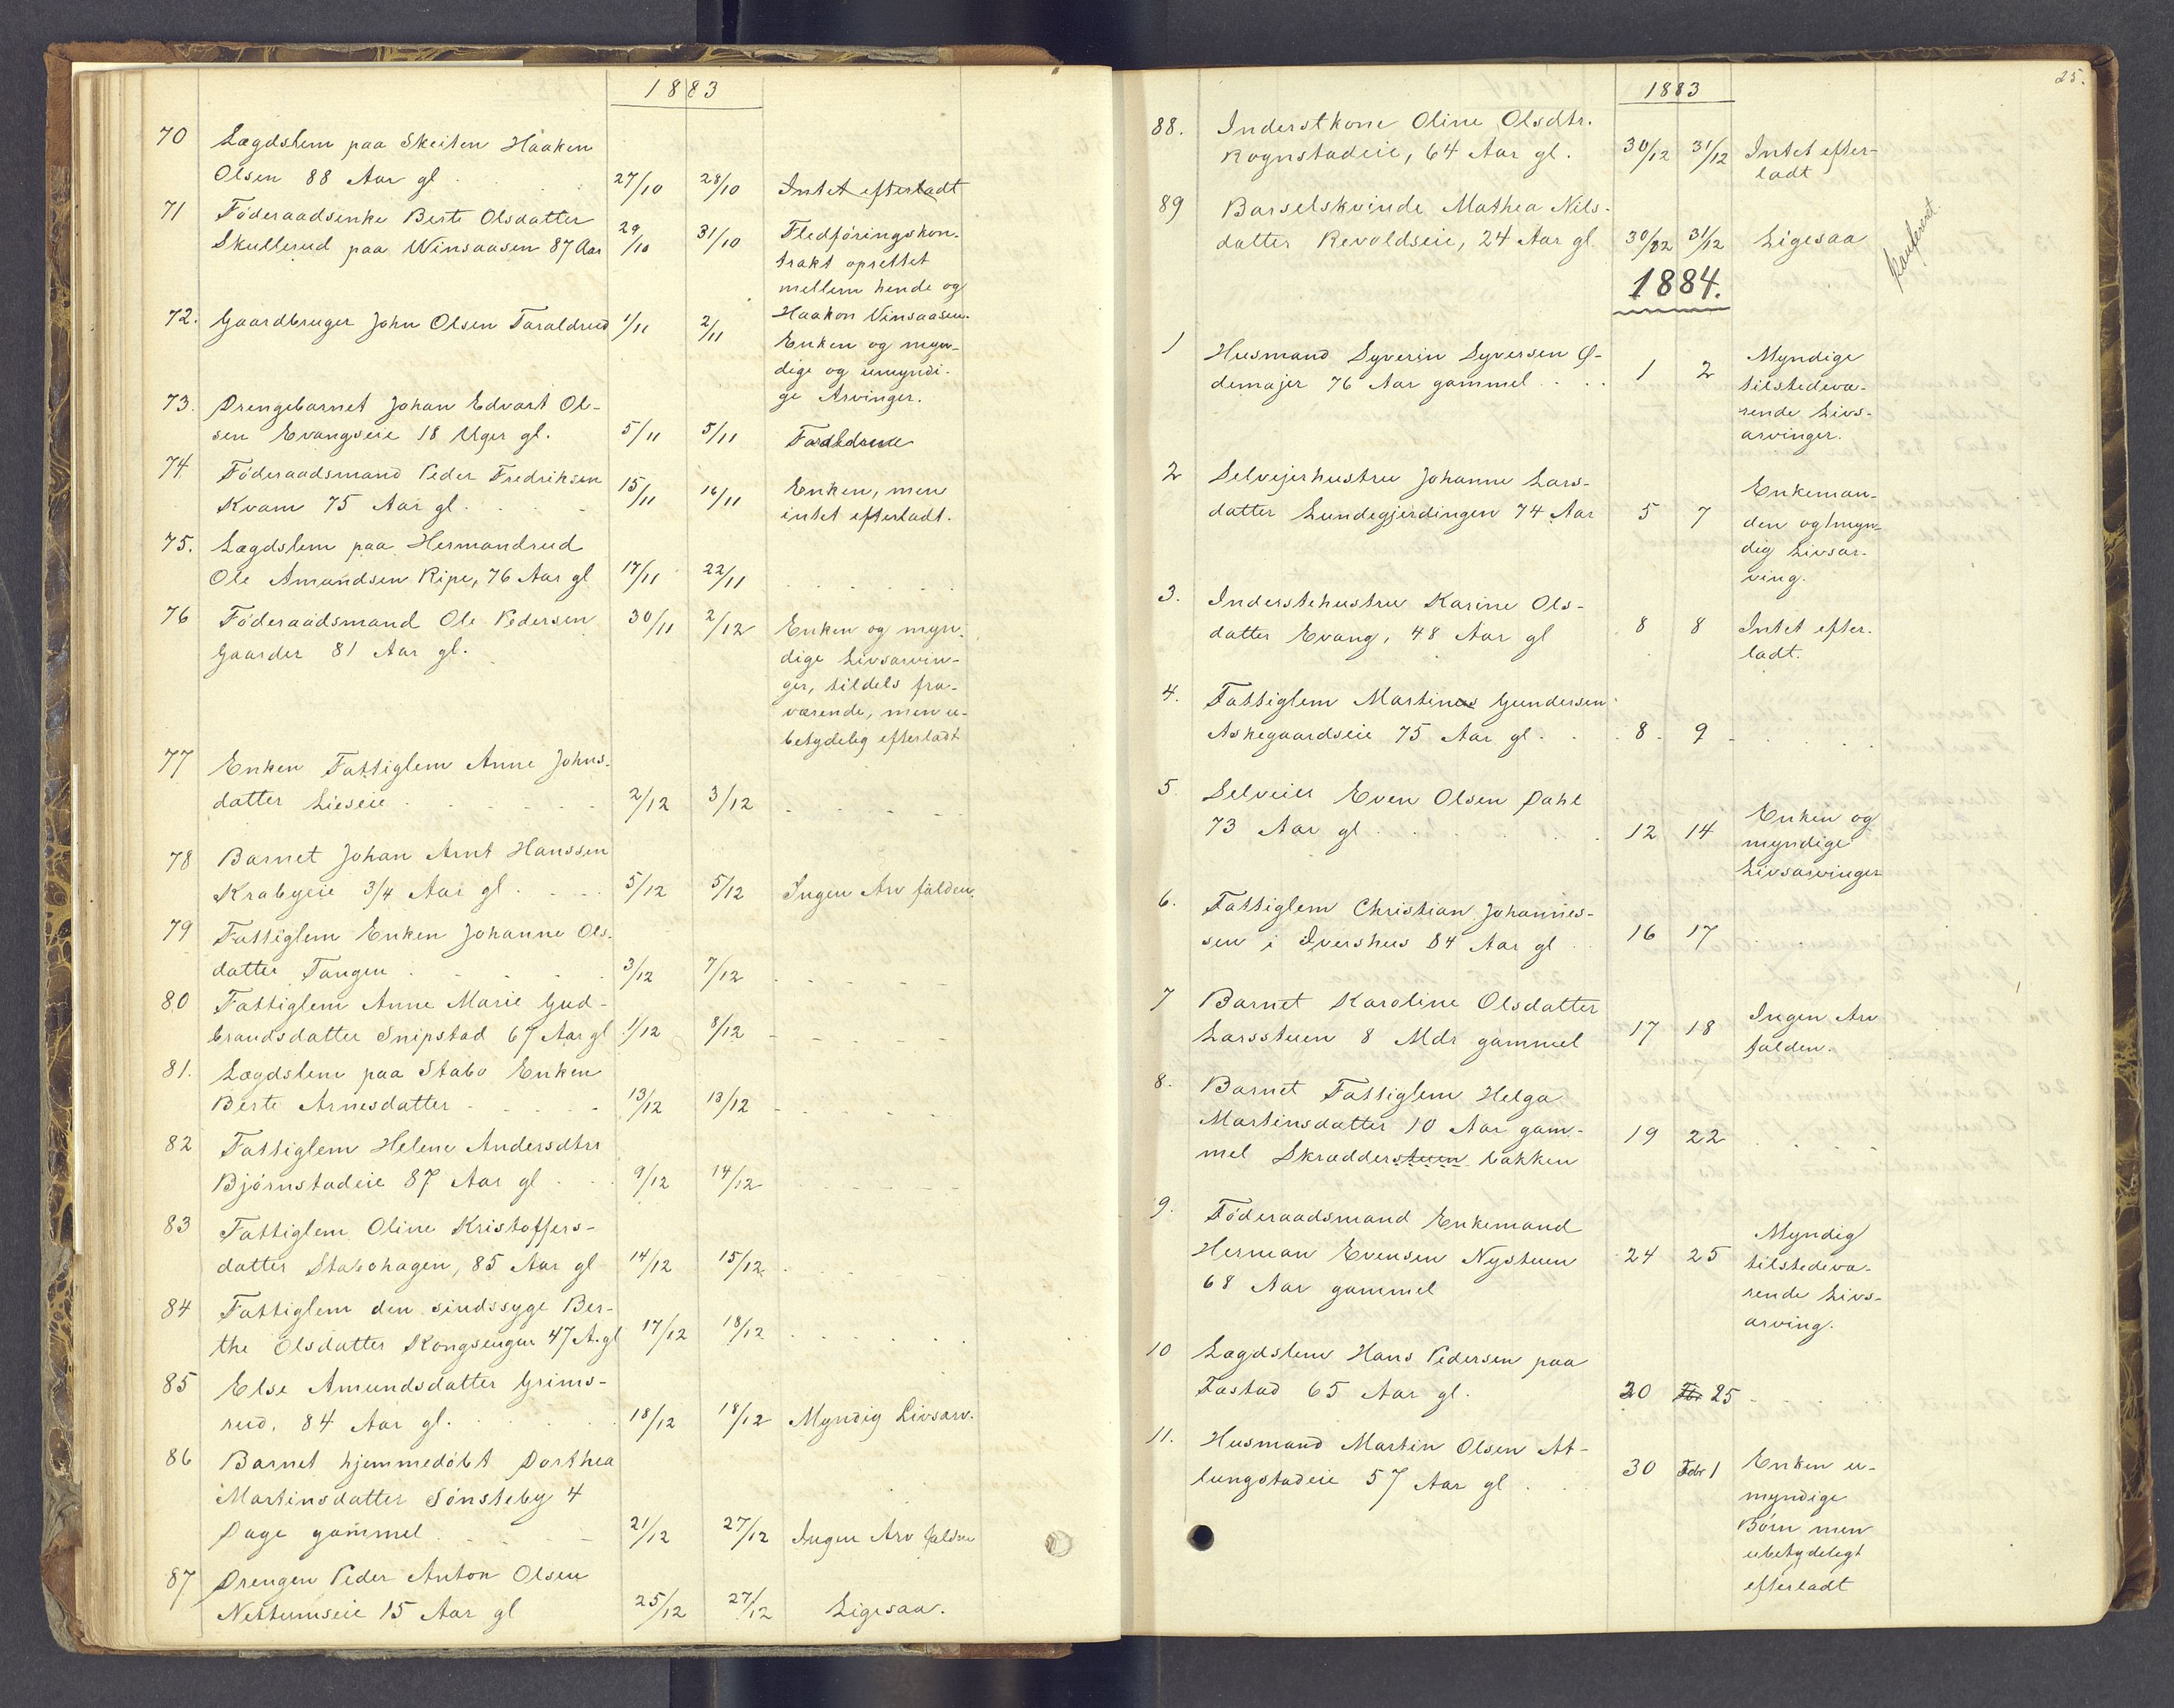 1883
70 Lægdslem paa Skeiten Haaken
Olsen 88 Aar gl . . . 27/10 28/10 Intet efterladt
71 Föderaadsenke Berte Olsdatter
Skullerud paa Winsaasen 87 Aar 29/10 31/10 Fledföringskon-
trakt oprettet
mellem hende og
Haakon Vinsaasen.
72. Gaardbruger John Olsen Taraldrud 1/11 2/11 Enken og myn-
dige og umyndi-
ge Arvinger.
73. Drengebarnet Johan Edvart Ol-
sen Evangseie 18 Uger gl. 5/11 5/11 Forældrene
74 Föderaadsmand Peder Fredriksen
Kvam 75 Aar gl . . . 15/11 16/11 Enken, men
intet efterladt.
75. Lægdslem paa Hermandrud
Ole Amundsen Ripe, 76 Aar gl 17/11 22/11 . . . .
76 Föderaadsmand Ole Pedersen 30/11 2/12 Enken og myn-
Gaarder 81 Aar gl.
dige Livsarvin-
ger, tildels fra-
værende, men u-
betydelig efterladt
77 Enken Fattiglem Anne Johns-
datter Lieseie . . . . 2/12 3/12 - - - -
78 Barnet Johan Arnt Hanssen
Krabyeie 3/4 Aar gl . . . 5/12 5/12 Ingen Arv falden.
79 Fattiglem Enken Johanne Ols-
datter Tangen . . . . 3/12 7/12 . . . .
80 Fattiglem Anne Marie Gud-
brandsdatter Snipstad 67 Aar gl 1/12 8/12 - - - -
81. Lægdslem paa Stabo Enken
Berte Arnesdatter . . . . 13/12 13/12 - - - -
82 Fattiglem Helene Andersdtr
Bjørnstadeie 87 Aar gl . . 9/12 14/12 - - - -
83 Fattiglem Oline Kristoffers-
datter Stabohagen, 85 Aar gl 14/12 15/12. . . . .
84 Fattiglem den sindssyge Ber-
the Olsdatter Kongsengen 47 A. gl 17/12 18/12 . . . .
85 Else Amundsdatter Grims-
rud, 84 Aar gl. . . . 18/12 18/12 Myndig Livsarv.
86 Barnet hjemmedöbt Dorthea
Martinsdatter Sønsteby 4
Dage gammel . . . 21/12 27/12 Ingen Arv falden
87 Drengen Peder Anton Olsen
Nettumseie 15 Aar gl 25/12 27/12 Ligesaa.
25.
1883
88. Inderstkone Oline Olsdtr.
Rognstadeie, 64 Aar gl. 30/12 31/12 Intet efter-
ladt
89 Barselskvinde Mathea Nils-
datter Revoldseie, 24 Aar gl. 30/12 31/12 Ligesaa
Konfereret.
1884.
1 Husmand Syverin Syversen Ø-
demajer 76 Aar gammel . . . 1 2 Myndige
tilstedevæ-
rende Livs-
arvinger.
2 Selvejerhustru Johanne Lars-
datter Lundegjerdingen 74 Aar 5 7 Enkeman-
den og 1 myn-
dig Livsar-
ving.
3. Inderstehustru Karine Ols-
datter Evang, 48 Aar gl 8 8 Intet efter-
ladt.
4. Fattiglem Martinus Gundersen
Askegaardseie 75 Aar gl . . . 8 . 9 . . . .
5. Selveier Even Olsen Dahl
73 Aar gl . . . . 12 14 Enken og
myndige
Livsarvinger
6. Fattiglem Christian Johannes-
sen i Ivershus 84 Aar gl . . 16 17 . . . .
7 Barnet Karoline Olsdatter
Larsstuen 8 Mdr gammel 17 18 Ingen Arv
falden.
8. Barnet Fattiglem Helga
Martinsdatter 10 Aar gam-
mel Skrædderstuen bakken 19 22 . . . .
9. Föderaadsmand Enkemand
Herman Evensen Nystuen 24 25 Myndig
68 Aar gammel
tilstedevæ-
rende Livs-
arving.
10 Lægdslem Hans Pedersen paa
Fastad 65 Aar gl. 20 Fbr 25 . . . .
11. Husmand Martin Olsen At-
lungstadeie 57 Aar gl . . . 30 Febr 1 Enken u-
myndige
Börn men
ubetydeligt
efterladt